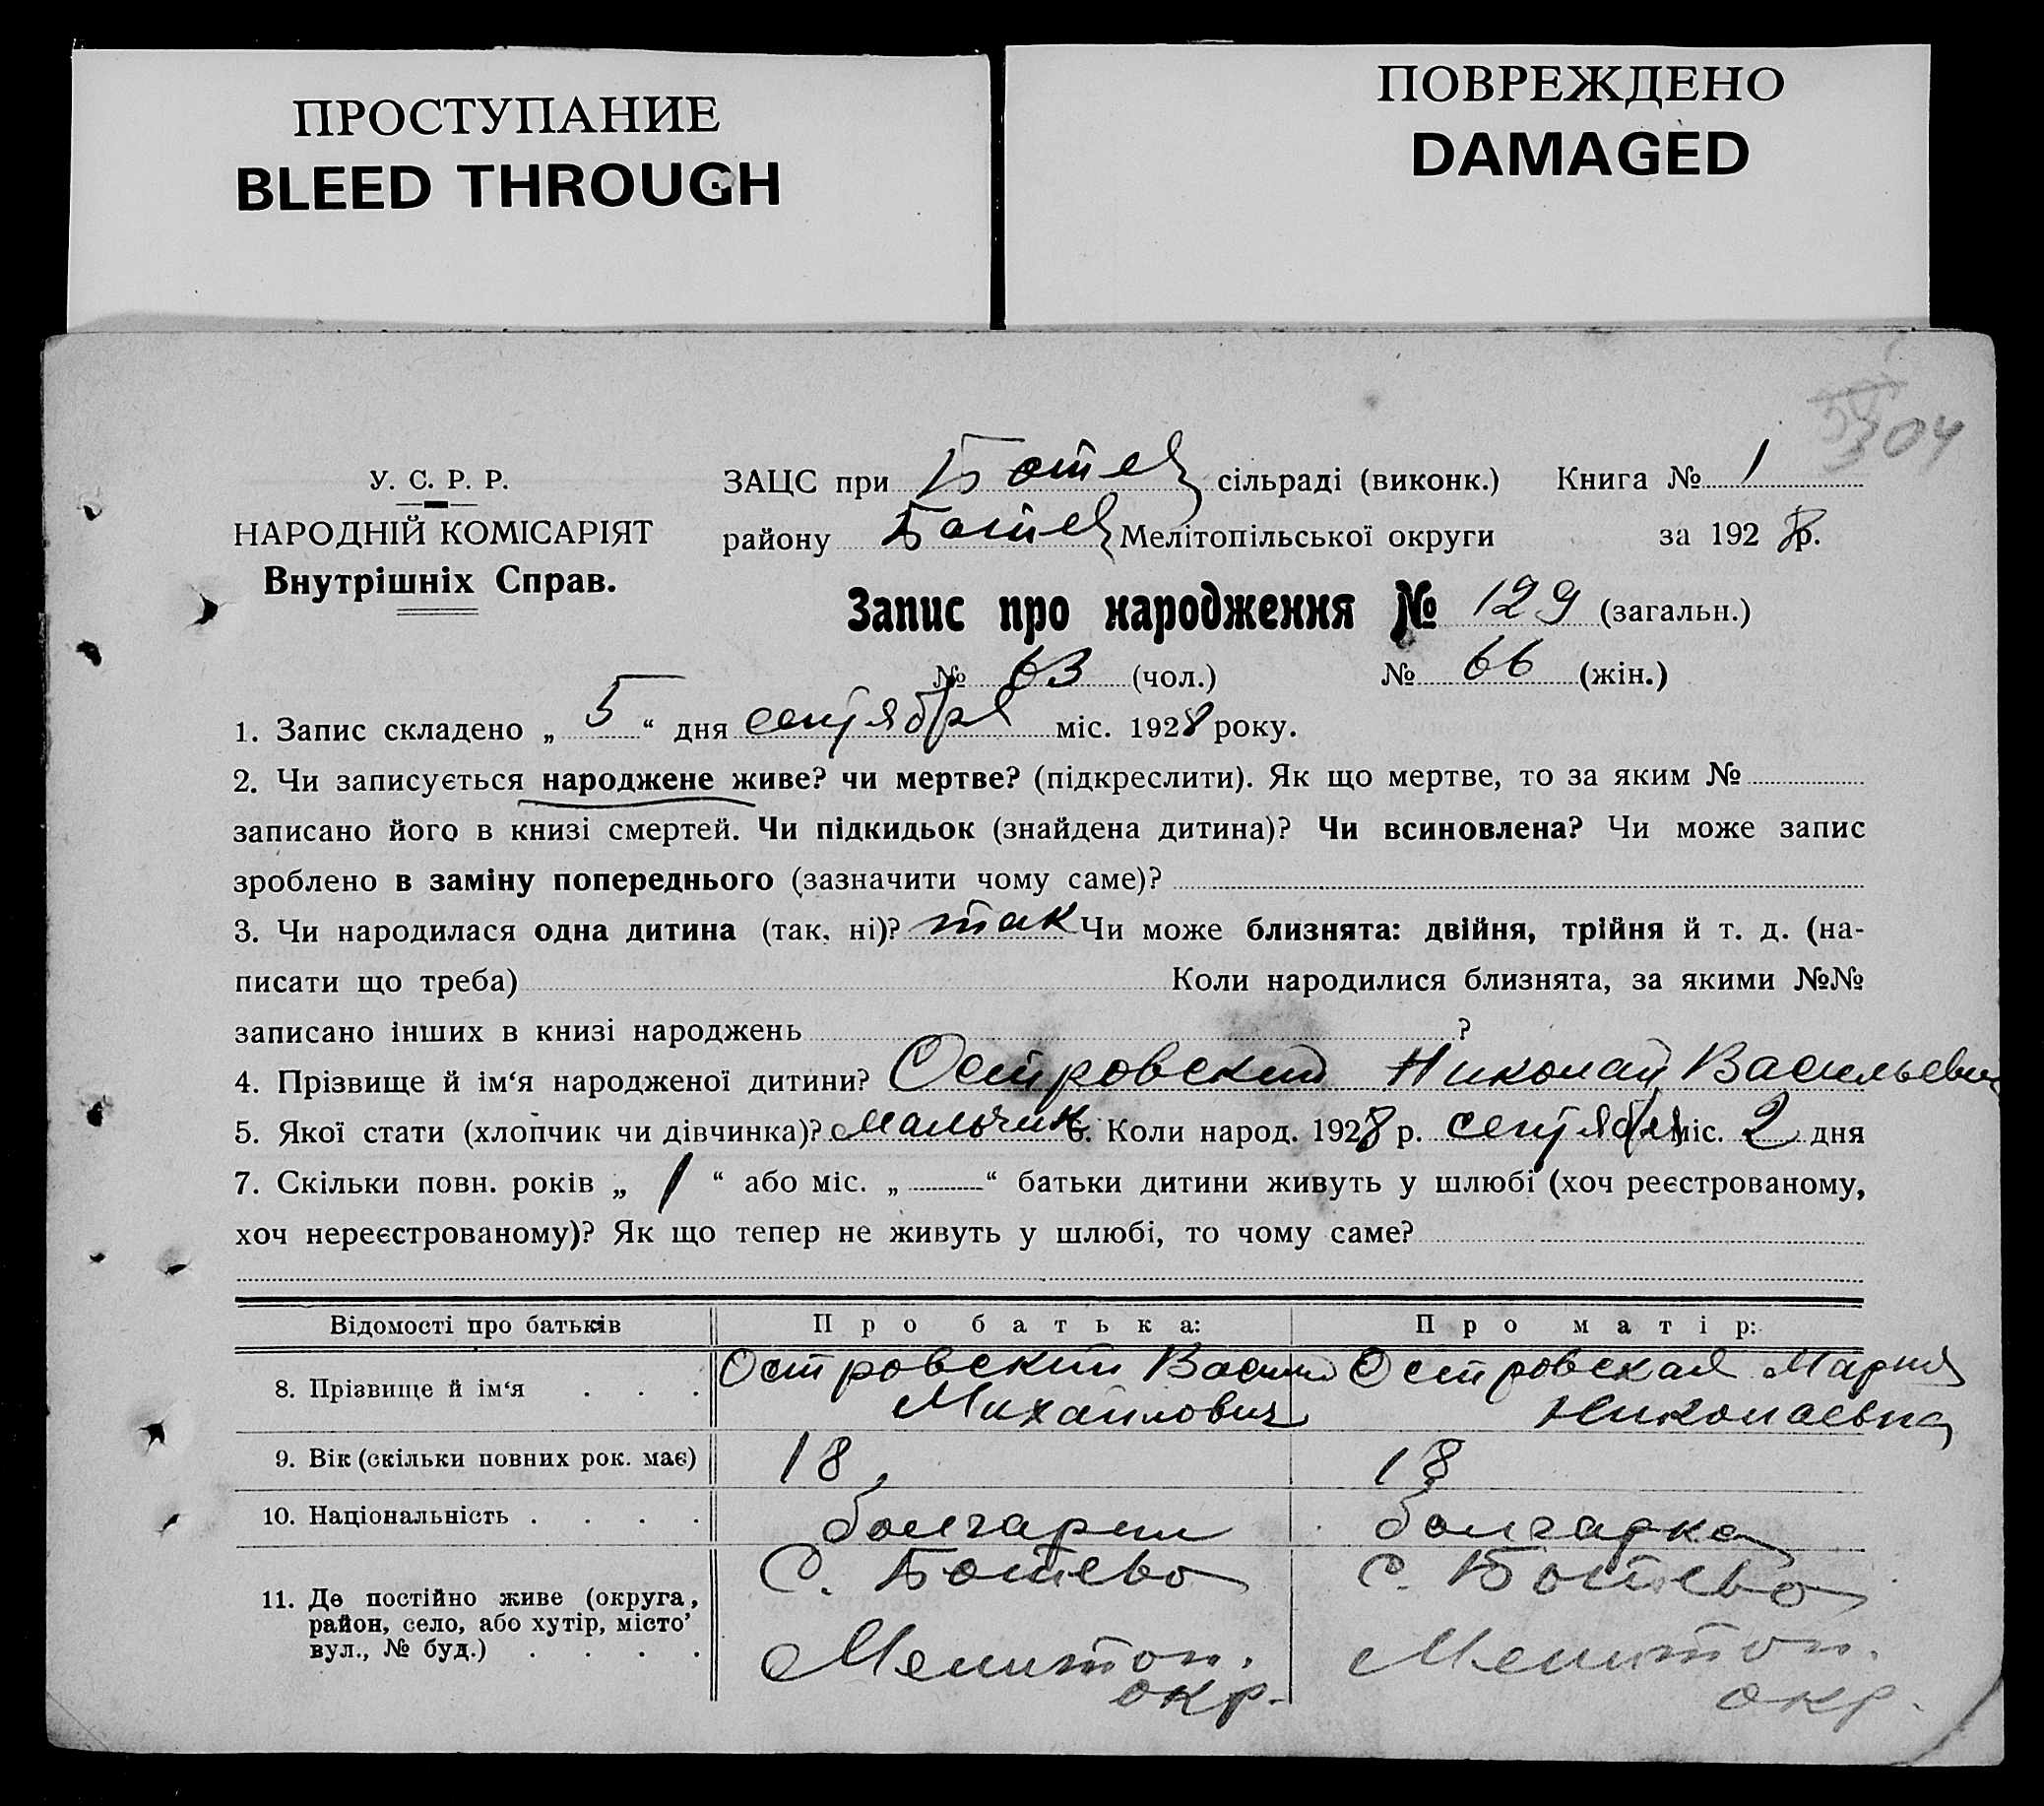 ПРОСТУПАНИЕ
BLEED THROUGH
ПОВРЕЖДЕНО
DAMAGED
304
У. С. Р. Р.
НАРОДНІЙ КОМІСАРІЯТ
Внутрішніх Справ.
ЗАЦС при Ботев сільраді (виконк.) Книга № 1
району Ботев Мелітопільської округи за 1928 р.
Запис про народження № 129 (загальн.)
№ 63 (чол.) № 66 (жін.)
1. Запис складено „ 5 “ дня сентября міс. 1928 року.
2. Чи записується народжене живе? чи мертве? (підкреслити). Як що мертве, то за яким №
записано його в книзі смертей. Чи підкидьок (знайдена дитина)? Чи всиновлена? Чи може запис
зроблено в заміну попереднього (зазначити чому саме)?
3. Чи народилася одна дитина (так, ні)? так Чи може близнята: двійня, трійня й т. д. (на-
писати що треба) Коли народилися близнята, за якими №№
записано інших в книзі народжень ?
4. Прізвище й ім‘я народженої дитини? Островский Николай Васильевич
5. Якої стати (хлопчик чи дівчинка)? мальчик 6. Коли народ. 1928 р. сентября міс. 2 дня
7. Скільки повн. років „ 1 “ або міс. „ “ батьки дитини живуть у шлюбі (хоч реєстрованому,
хоч нереєстрованому)? Як що тепер не живуть у шлюбі, то чому саме?
Відомості про батьків Про батька: Про матір:
8. Прізвище й ім‘я . . . Островский Васили Островская Мария
Михайлович Николаевна
9. Вік (скільки повних рок. має) 18 18
10. Національність . . . . болгарин болгарка
11. Де постійно живе (округа, С. Ботево С. Ботево
район, село, або хутір, місто’
вул., № буд.) . . . . Мелитоп. Мелитоп.
окр. окр.